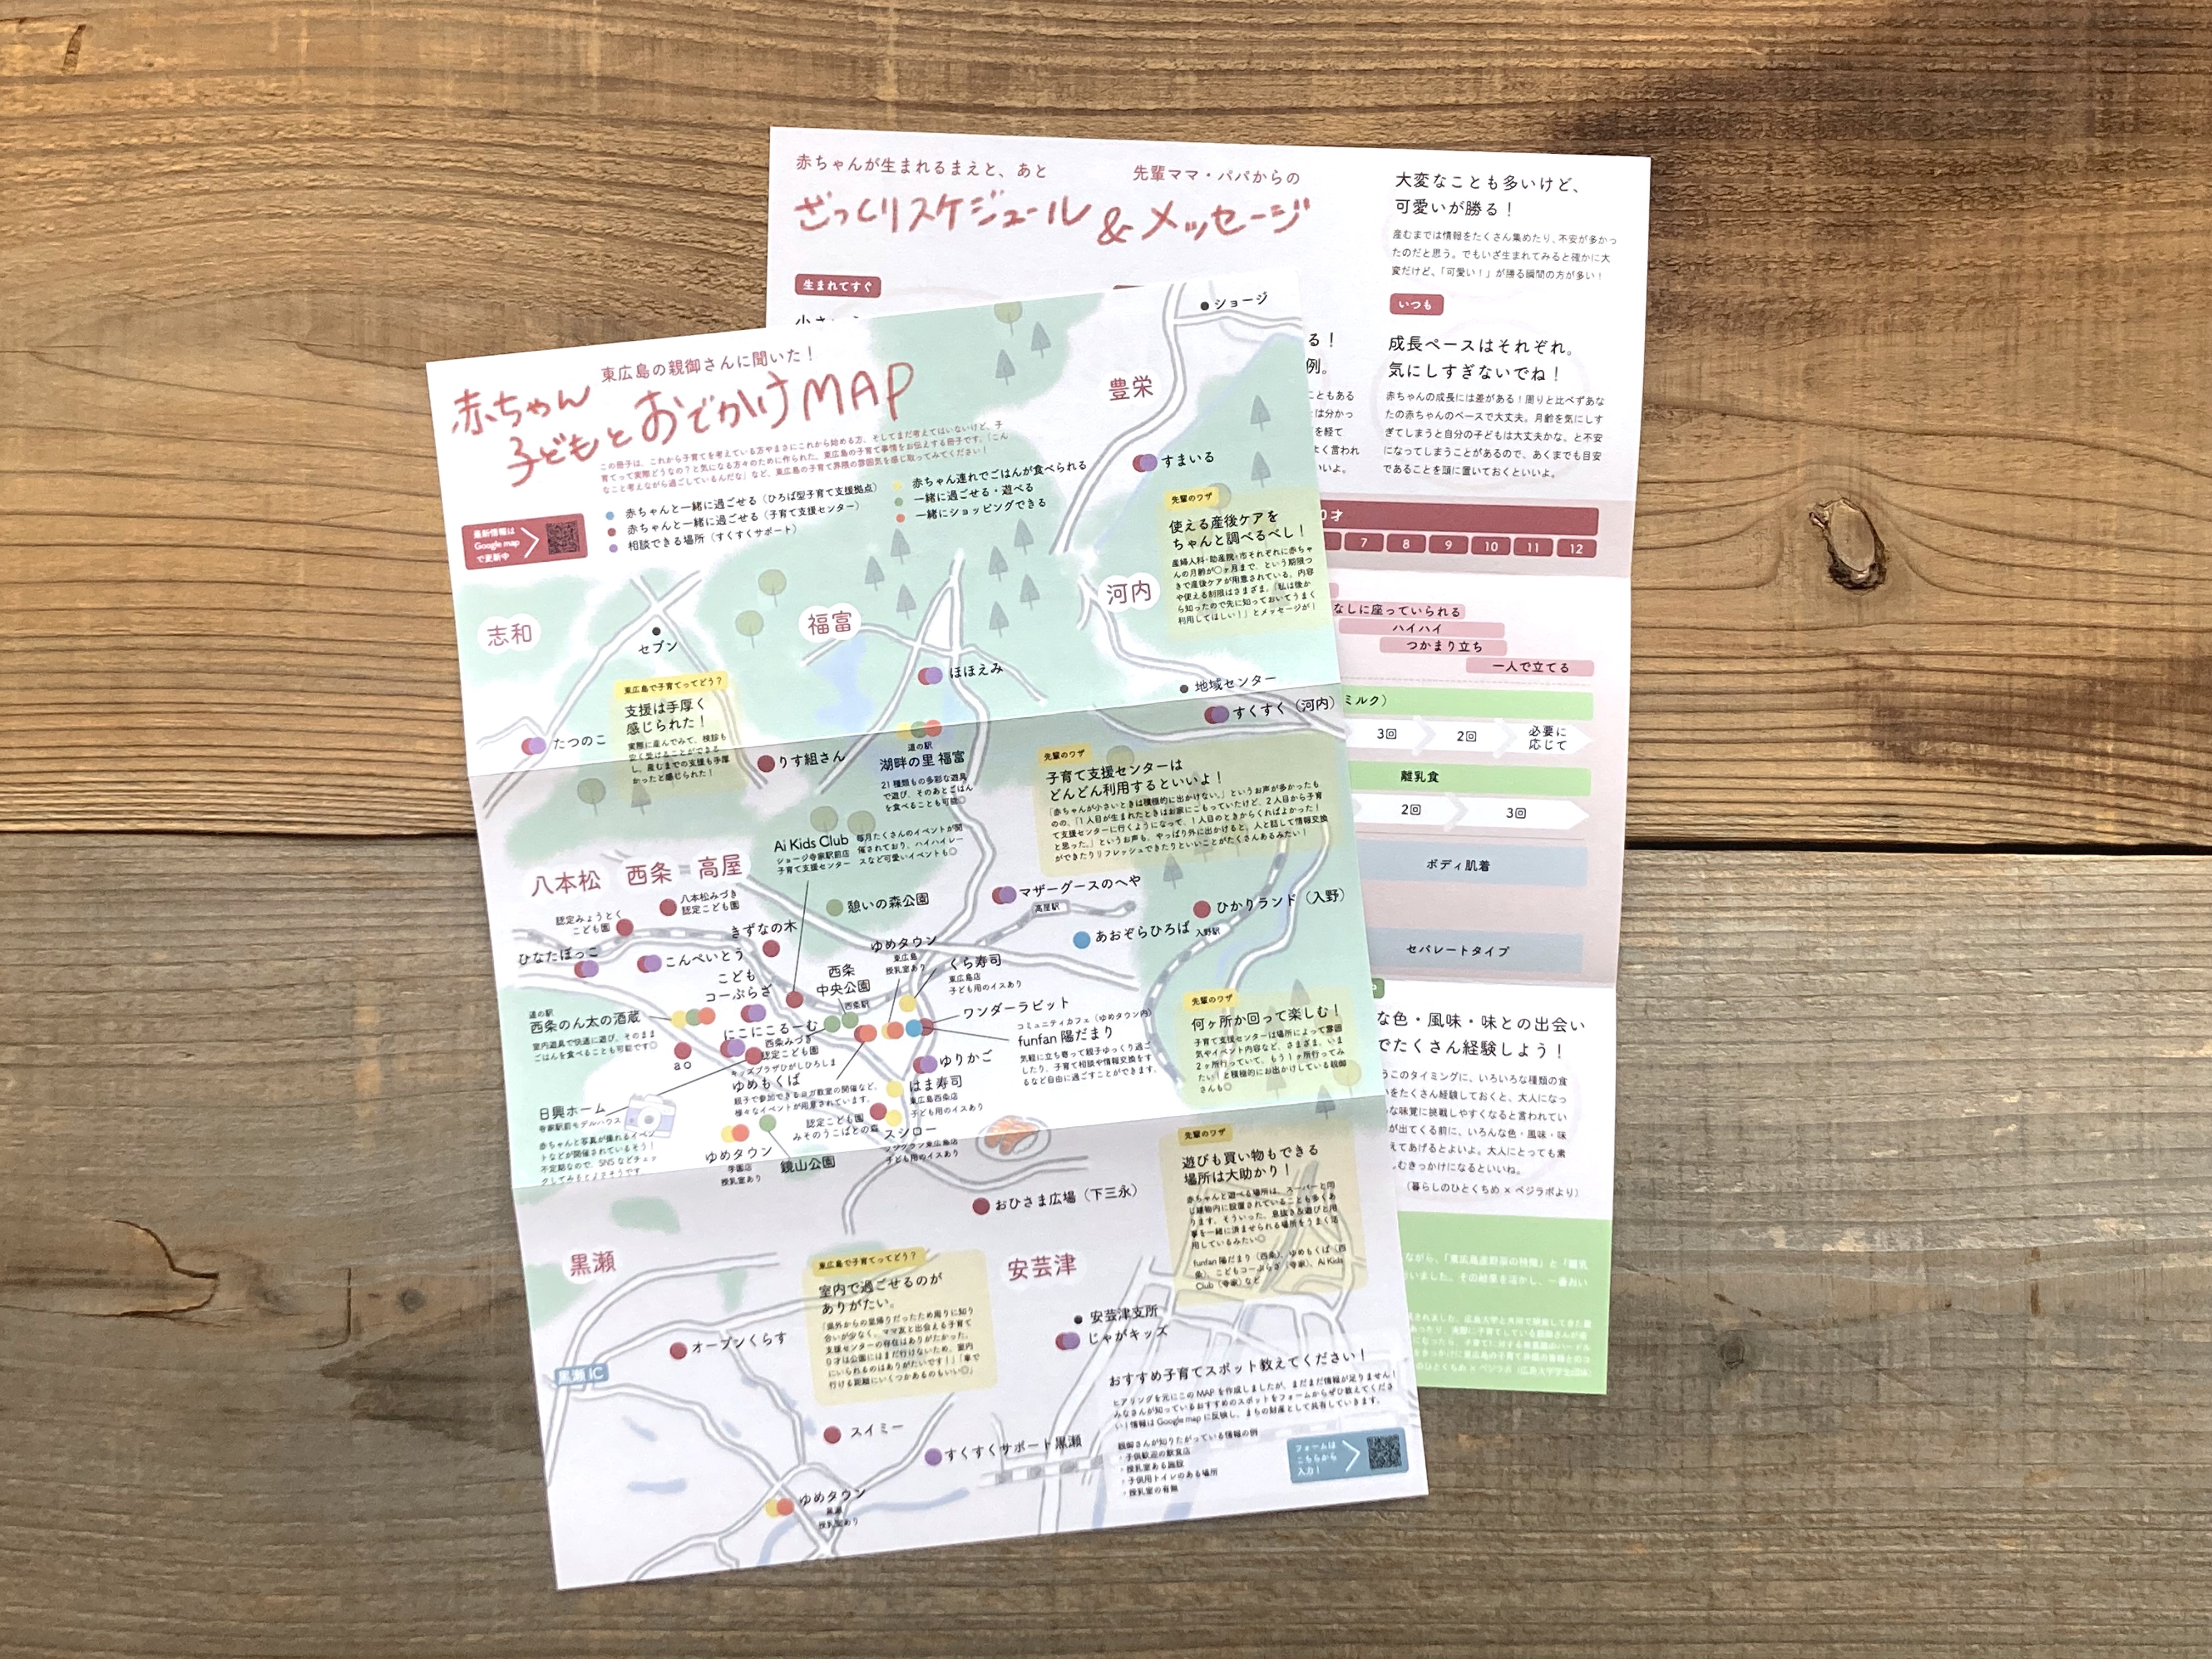 赤ちゃんが生まれるまえと、あと
先輩ママ・パパからの
ざっくりスケジュール & メッセージ
生まれてすぐ
大変なことも多いけど、
可愛いが勝る！
産むまでは情報をたくさん集めたり、不安が多かっ
たのだと思う。でもいざ生まれてみると確かに大
変だけど、「可愛い！」が勝る瞬間の方が多い！
いつも
成長ペースはそれぞれ。
気にしすぎないでね！
赤ちゃんの成長には差がある！周りと比べずあな
たの赤ちゃんのペースで大丈夫。月齢を気にしす
ぎてしまうと自分の子どもは大丈夫かな、と不安
になってしまうことがあるので、あくまでも目安
であることを頭に置いておくといいよ。
る！
例。
こともある
は分かっ
を経て
よく言われ
いいよ。
0才
7 8 9 10 11 12
なしに座っていられる
ハイハイ
つかまり立ち
一人で立てる
ミルク）
3回
2回
必要に
応じて
離乳食
2回
3回
ボディ肌着
セパレートタイプ
な色・風味・味との出会い
でたくさん経験しよう！
うこのタイミングに、いろいろな種類の食
をたくさん経験しておくと、大人になっ
な味覚に挑戦しやすくなると言われてい
が出てくる前に、いろんな色・風味・味
えてあげるとよいよ。大人にとっても素
むきっかけになるといいね。
（暮らしのひとくちめ × ベジラボより）
東広島の親御さんに聞いた！
赤ちゃん
子どもとおでかけMAP
この冊子は、これから子育てを考えている方やまさにこれから始める方、そしてまだ考えてはいないけど、子
育てって実際どうなの？と気になる方々のために作られた、東広島の子育て事情をお伝えする冊子です。「こん
なこと考えながら過ごしているんだな」など、東広島の子育て界隈の雰囲気を感じ取ってみてください！
最新情報は
Google map
で更新中
赤ちゃんと一緒に過ごせる（ひろば型子育て支援拠点）
赤ちゃんと一緒に過ごせる（子育て支援センター）
相談できる場所（すくすくサポート）
赤ちゃん連れでごはんが食べられる
一緒に過ごせる・遊べる
一緒にショッピングできる
ショージ
豊栄
すまいる
先輩のワザ
使える産後ケアを
ちゃんと調べるべし！
産婦人科・助産院・市それぞれに赤ちゃ
んの月齢が○ヶ月まで、という期限つ
きで産後ケアが用意されている。内容
や使える制限はさまざま。「私は後か
ら知ったので先に知っておいてうまく
利用してほしい！」とメッセージが！
河内
志和
セブン
福富
ほほえみ
地域センター
すくすく（河内）
東広島で子育てってどう？
支援は手厚く
感じられた！
実際に産んでみて、検診も
し、産むまでの支援も手厚
かったと感じられた！
たつのこ
りす組さん
道の駅
湖畔の里 福富
21種類もの多彩な遊具
で遊び、そのあとごはん
を食べることも可能◎
先輩のワザ
子育て支援センターは
どんどん利用するといいよ！
「赤ちゃんが小さいときは積極的に出かけない。」というお声が多かったも
のの、「1人目が生まれたときはお家にこもっていたけど、2人目から子育
て支援センターに行くようになって、1人目のときからくればよかった！
と思った。」というお声も。やっぱり外に出かけると、人と話して情報交換
ができたりリフレッシュできたりといいことがたくさんあるみたい！
Ai Kids Club
ショージ寺家駅前店
子育て支援センター
毎月たくさんのイベントが開
催されており、ハイハイレー
スなど可愛いイベントも◎
八本松
西条
高屋
八本松みづき
認定こども園
認定みょうとく
こども園
憩いの森公園
マザーグースのへや
高屋駅
ひかりランド（入野）
入野駅
あおぞらひろば
きずなの木
ひなたぼっこ
こんぺいとう
こども
コーぷらざ
西条
中央公園
西条駅
ゆめタウン
東広島
授乳室あり
くら寿司
東広島店
子ども用のイスあり
ワンダーラビット
コミュニティカフェ（ゆめタウン内）
funfan 陽だまり
気軽に立ち寄って親子ゆっくり過ご
したり、子育て相談や情報交換をす
るなど自由に過ごすことができます。
道の駅
西条のん太の酒蔵
室内遊具で快適に遊び、そのまま
ごはんを食べることも可能です◎
ao
にこにこるーむ
西条みづき
認定こども園
キッズプラザひがしひろしま
ゆめもくば
親子で参加できるヨガ教室の開催など、
様々なイベントが用意されています。
ゆりかご
はま寿司
東広島西条店
子ども用のイスあり
認定こども園
みそのうこばとの森
スシロー
フジグラン東広島店
子ども用のイスあり
日興ホーム
寺家駅前モデルハウス
赤ちゃんと写真が撮れるイベン
トなどが開催されているそう！
不定期なので、SNSなどチェッ
クしてみるとよさそうです
ゆめタウン
学園店
授乳室あり
鏡山公園
先輩のワザ
何ヶ所か回って楽しむ！
子育て支援センターは場所によって雰囲
気やイベント内容など、さまざま。いま
2ヶ所行っていて、もう1ヶ所行ってみ
たい！と積極的にお出かけしている親御
さんも◎
先輩のワザ
遊びも買い物もできる
場所は大助かり！
赤ちゃんと遊べる場所は、スーパーと同
じ建物内に設置されていることも多くあ
ります。そういった、息抜き&遊びと用
事を一緒に済ませられる場所をうまく活
用しているみたい◎
funfan 陽だまり（西条）、ゆめもくば（西
条）、こどもコーぷらざ（寺家）、Ai Kids
Club（寺家）など
おひさま広場（下三永）
黒瀬
東広島で子育てってどう？
室内で過ごせるのが
ありがたい。
「県外からの里帰りだったため周りに知り
合いが少なく、ママ友と出会える子育て
支援センターの存在はありがたかった。
0才は公園にはまだ行けないため、室内
にいられるのはありがたいです！」「車で
行ける距離にいくつかあるのもいい◎」
安芸津
安芸津支所
じゃがキッズ
オープンくらす
黒瀬 IC
スイミー
すくすくサポート黒瀬
ゆめタウン
黒瀬
授乳室あり
おすすめ子育てスポット教えてください！
ヒアリングを元にこのMAPを作成しましたが、まだまだ情報が足りません！
みなさんが知っているおすすめのスポットをフォームからぜひ教えてくださ
い！情報はGoogle mapに反映し、まちの財産として共有していきます。
親御さんが知りたがっている情報の例
・子供歓迎の飲食店
・授乳室ある施設
・子供用トイレのある場所
・授乳室の有無
フォームは
こちらから
入力！